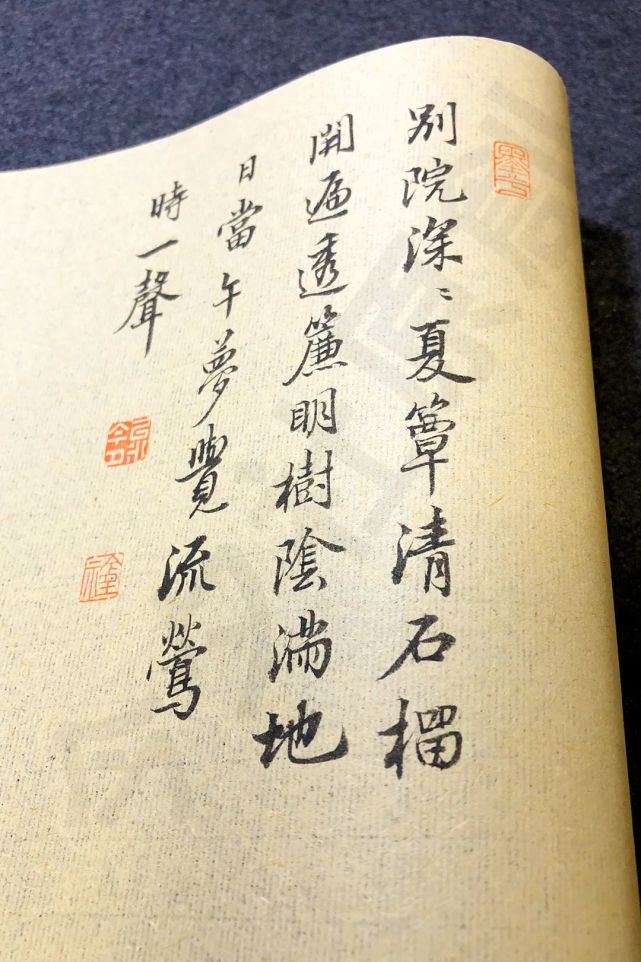 別院深〻夏簟清石榴
開遍透簾明樹陰満地
日當午夢覺流鶯
時一聲